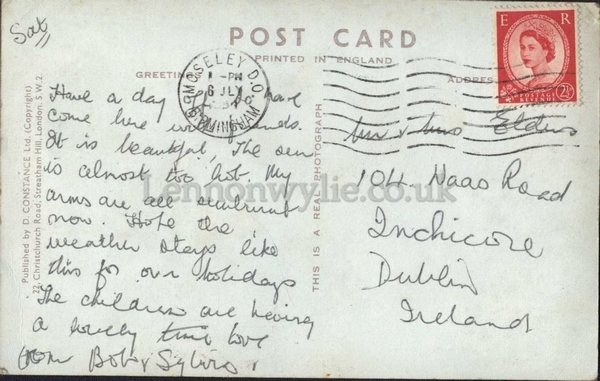 Sat
POST CARD
PRINTED IN ENGLAND
GREETINGS
ADDRES
E R
POSTAGE
REVENUE
2½
MOSELEY D.O.
1 - PM
6 JLY
BIRMINGHAM
Have a day have
come here with friends.
It is beautiful, The sun
is almost too hot. My
arms are all sunburnt
now. Hope the
weather stays like
this for our holidays
The children are having
a lovely time love
from Bob & Sylvia.
Mr & Mrs Elders
104 Naas Road
Inchicore
Dublin
Ireland
THIS IS A REAL PHOTOGRAPH
Published by D. CONSTANCE Ltd. (Copyright)
22, Christchurch Road, Streatham Hill, London, S.W.2.
Lennonwylie.co.uk